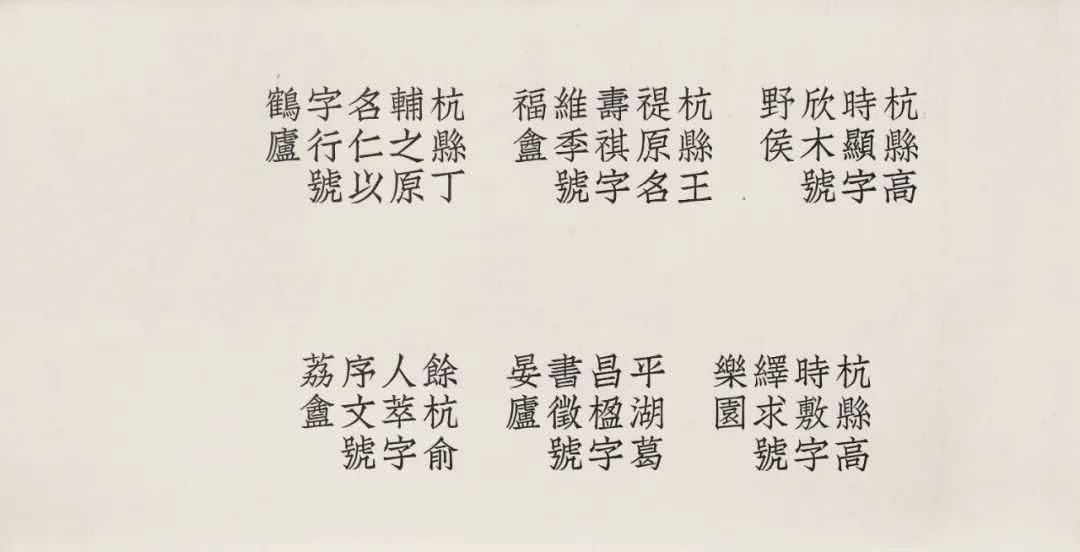 杭縣高
時顯字
欣木號
野侯
杭縣王
禔原名
壽祺字
維季號
福盦
杭縣丁
輔之原
名仁以
字行號
鶴廬
杭縣高
時敷字
繹求號
樂園
平湖葛
昌楹字
書徵號
晏廬
餘杭俞
人萃字
序文號
荔盦